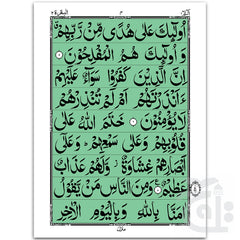 اُولٰٓئِكَ عَلٰى هُدًى مِّنْ رَّبِّهِمْ
وَاُولٰٓئِكَ هُمُ الْمُفْلِحُوْنَ
اِنَّ الَّذِيْنَ كَفَرُوْا سَوَآءٌ عَلَيْهِمْ
ءَاَنْذَرْتَهُمْ اَمْ لَمْ تُنْذِرْهُمْ
لَا يُؤْمِنُوْنَ خَتَمَ اللّٰهُ عَلٰى
قُلُوْبِهِمْ وَعَلٰى سَمْعِهِمْ وَعَلٰٓى
اَبْصَارِهِمْ غِشَاوَةٌ وَّلَهُمْ عَذَابٌ
عَظِيْمٌ وَمِنَ النَّاسِ مَنْ يَّقُوْلُ
اٰمَنَّا بِاللّٰهِ وَبِالْيَوْمِ الْاٰخِرِ